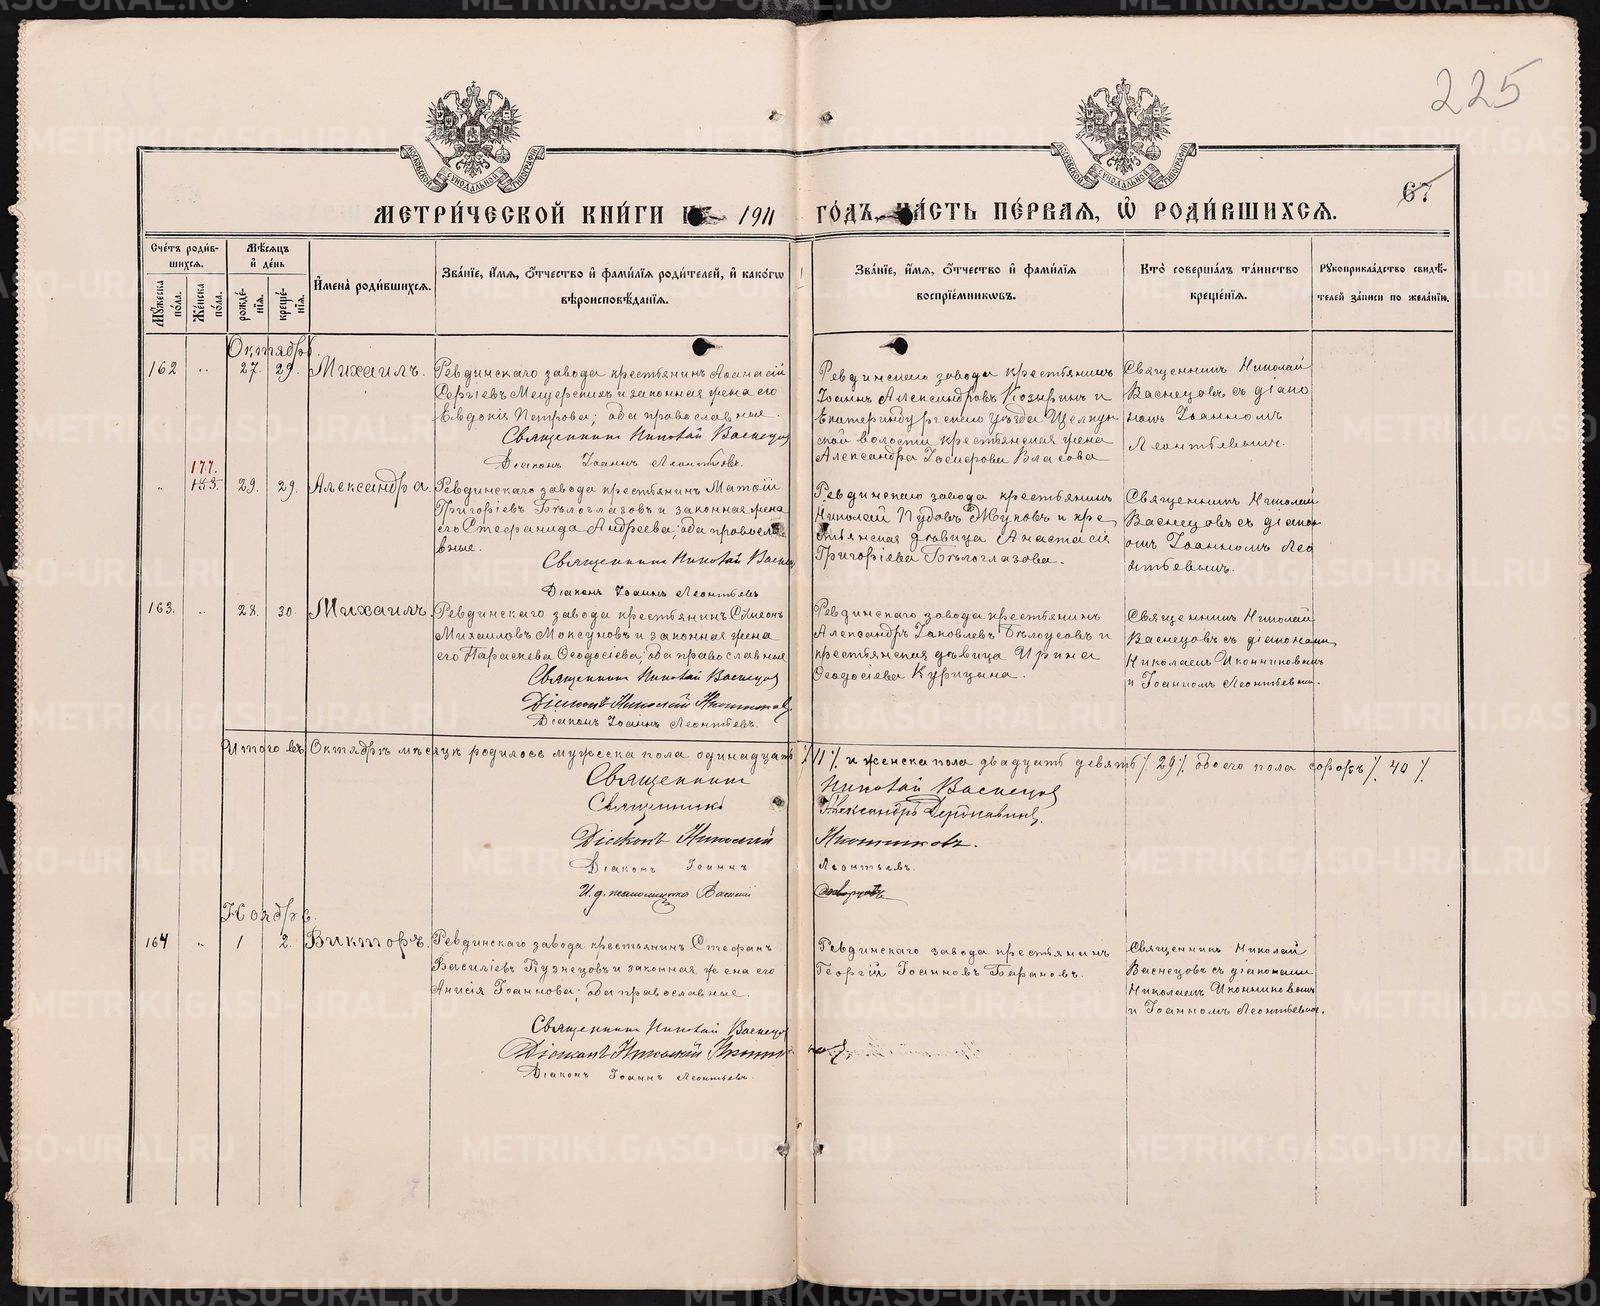 225
67
МЕТРИ́ЧЕСКОЙ КНИ́ГИ 1911 ГО́ДЪ, ЧА́СТЬ ПЕ́РВАЯ, Ѡ҆ РОДИ́ВШИХСЯ.
Сче́тъ роди́в-
шихся.
Мꙋ́жеска по́ла.
Же́нска по́ла.
Мѣ́сяцъ
и҆ де́нь
рожде́-
нїя.
креще́-
нїя.
И҆мена̀ роди́вшихся.
Зва́нїе, и҆́мя, ѻ҆́тчество и҆ фами́лїя роди́телей, и҆ како́гѡ
вѣроисповѣ́данїя.
Зва́нїе, и҆́мя, ѻ҆́тчество и҆ фами́лїя
воспрїе́мникѡвъ.
Кто̀ соверша́лъ та́инство
креще́нїя.
Рꙋкоприкла́дство свидѣ́-
телей за́писи по жела́нїю.
Октябрь.
162 „ 27. 29. Михаилъ.
Ревдинскаго завода крестьянинъ Аѳанасій
Сергіевъ Мещерскихъ и законная жена его
Евдокія Петрова; оба православные.
Священникъ Николай Васнецовъ
Діаконъ Іоаннъ Леонтьевъ.
Ревдинскаго завода крестьянинъ
Іоаннъ Александровъ Козыринъ и
Екатеринбургскаго уѣзда Щелкун
ской волости крестьянская жена
Александра Іосифова Власова
Священникъ Николай
Васнецовъ съ діако
номъ Іоанномъ
Леонтьевымъ.
177.
„ 153. 29. 29. Александра.
Ревдинскаго завода крестьянинъ Матѳій
Григоріевъ Бѣлоглазовъ и законная жена
его Стефанида Андреева; оба правосла
вные.
Священникъ Николай Васнец
Діаконъ Іоаннъ Леонтьевъ
Ревдинскаго завода крестьянинъ
Николай Пудовъ Жуковъ и кре
стьянская дѣвица Анастасія
Григоріева Бѣлоглазова.
Священникъ Николай
Васнецовъ съ діакон
омъ Іоанномъ Лео
нтьевымъ.
163. „ 28. 30. Михаилъ.
Ревдинскаго завода крестьянинъ Сѵмеонъ
Михаиловъ Моксуновъ и законная жена
его Параскева Ѳеодосіева; оба православные
Священникъ Николай Васнецовъ
Діаконъ Николай Иконниковъ
Діаконъ Іоаннъ Леонтьевъ.
Ревдинскаго завода крестьянинъ
Александръ Іаковлевъ Бѣлоусовъ и
крестьянская дѣвица Ирина
Ѳеодосіева Курицына.
Священникъ Николай
Васнецовъ съ діаконами
Николаемъ Иконниковымъ
и Іоанномъ Леонтьевымъ.
Итого въ Октябрѣ мѣсяцѣ родилось мужеска пола одинадцать /11/. и женска пола двадцать девять /29/. обоего пола сорокъ /. 40 /.
Священникъ Николай Васнецовъ
Священникъ Александръ Державинъ.
Діаконъ Николай Иконниковъ.
Діаконъ Іоаннъ Леонтьевъ.
И. д. псаломщика Василій
Ноябрь.
164 „ 1 2. Викторъ.
Ревдинскаго завода крестьянинъ Стефанъ
Василіевъ Кузнецовъ и законная жена его
Анисія Іоаннова; оба православные.
Священникъ Николай Васнецов
Діаконъ Николай Иконниковъ
Діаконъ Іоаннъ Леонтьевъ.
Ревдинскаго завода крестьянинъ
Георгій Іоанновъ Барановъ.
Священникъ Николай
Васнецовъ съ діаконами
Николаемъ Иконниковымъ
и Іоанномъ Леонтьевымъ.
METRIKI.GASO-URAL.RU